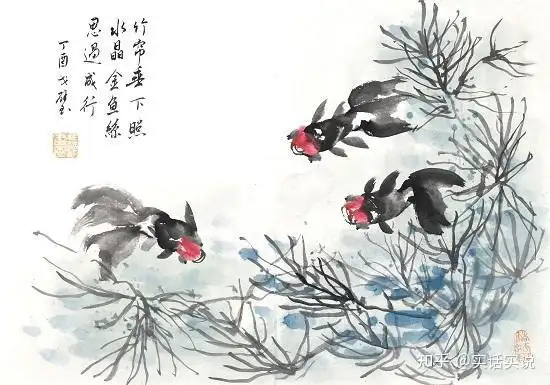 竹帘垂下照
水晶金鱼絲
思過成行
丁酉
知乎 @实话实说